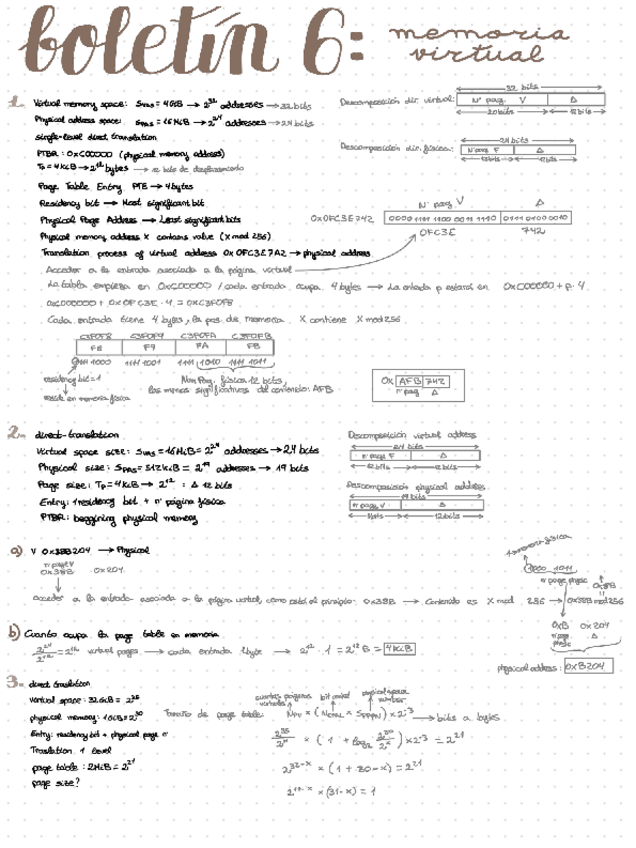 boletín 6: memoria virtual
1. Virtual memory space: SVAS = 4GiB → 2^32 addresses → 32 bits
Physical address space: SPAS = 16 MiB → 2^24 addresses → 24 bits
single-level direct translation
PTBR: 0xC00000 (physical memory address)
TP = 4KiB → 2^12 bytes → 12 bits de desplazamiento
Page Table Entry PTE → 4 bytes
Residency bit → Most significant bit
Physical Page Address → Least significant bits
Physical memory address X contains value (X mod 256)
Translation process of virtual address 0x0FC3E7A2 → physical address
Descomposición dir. virtual:
32 bits
Nº pag. V Δ
20 bits 12 bits
Descomposición dir. física:
24 bits
Nº pag F Δ
12 bits 12 bits
Nº pag V Δ
0x0FC3E742 0000 1111 1100 0011 1110 0111 0100 0010
0FC3E 742
Acceder a la entrada asociada a la página virtual
La tabla empieza en 0xC00000 / cada entrada ocupa 4 bytes → La entrada p estará en 0xC00000 + p · 4
0xC00000 + 0x0FC3E · 4 = 0xC3F0F8
Cada entrada tiene 4 bytes, la pos. de memoria X contiene X mod 256
C3F0F8 C3F0F9 C3F0FA C3F0FB
F8 F9 FA FB
1111 1000 1111 1001 1111 1010 1111 1011
residency bit = 1
reside en memoria física
Num Pag. física 12 bits,
los menos significativos del contenido: AFB
0x AFB 742
nº pag Δ
2. direct-translation
Virtual space size: SVAS = 16MiB = 2^24 addresses → 24 bits
Physical size: SPAS = 512KiB = 2^19 addresses → 19 bits
Page size: TP = 4KiB → 2^12 : Δ 12 bits
Entry: 1 residency bit + nº página física
PTBR: beggining physical memory
Descomposición virtual address
24 bits
nº page V Δ
12 bits 12 bits
Descomposición physical address
19 bits
nº page V Δ
7 bits 12 bits
a) V 0x38B204 → Physical
nº page V
0x38B 0x204
acceder a la entrada asociada a la página virtual, como está al principio: 0x38B → Contenido es X mod 256 → 0x38B mod 256
1000 1011
nº page physic
0x8B
0xB 0x204
nº page physic Δ
physical address: 0xB204
b) Cuanto ocupa la page table en memoria
2^24 / 2^12 = 2^12 virtual pages → cada entrada 1 byte → 2^12 · 1 = 2^12 B = 4KiB
3. direct translation
virtual space: 32GiB = 2^35
physical memory: 1GiB = 2^30
Entry: residency bit + physical page nº
Translation 1 level
page table: 2MiB = 2^21
page size?
cuantas páginas virtuales bit control physical page number
Tamaño de page table: × 2^-3 → bits a bytes
2^35 / 2^x × (1 + log2 2^30 / 2^x) × 2^-3 = 2^21
2^32-x × (1 + 30 - x) = 2^21
2^11-x × (31 - x) = 1